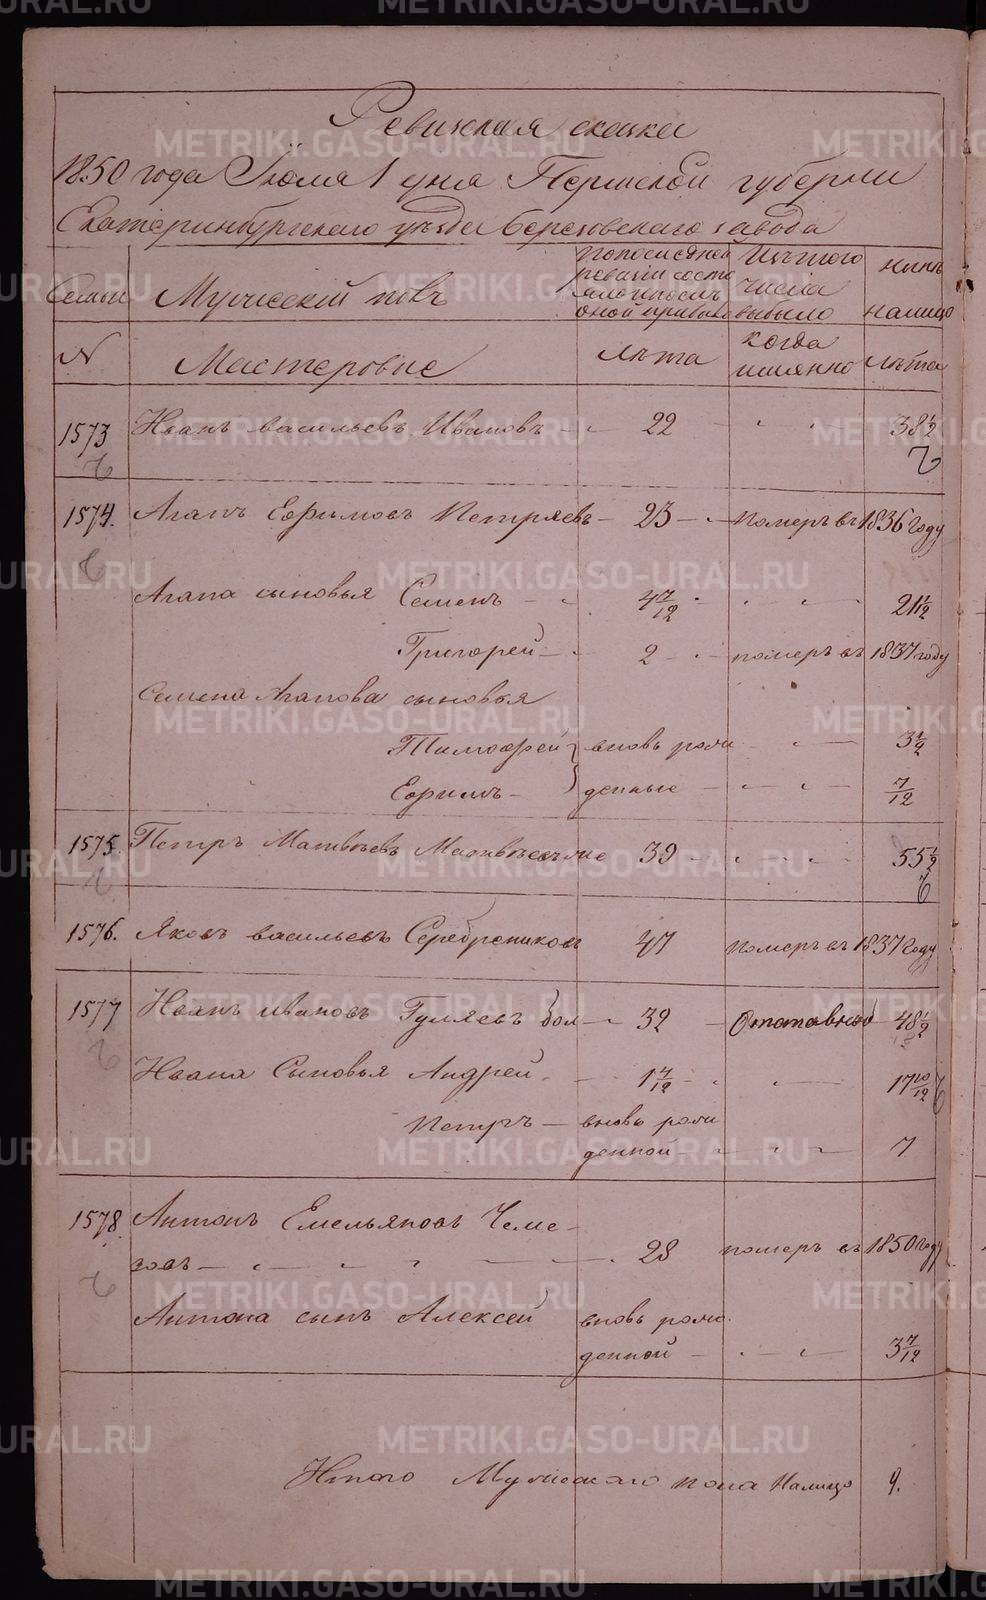 Ревизская сказка
1850 года Июля 1 дня Пермской губернии
Екатеринбургского уѣзда Березовского завода
Семьи Мужескій полъ
По последней ревизіи состояло и после оной прибыло
Изъ того числа выбыло
Нынѣ налицо
N Мастеровые лѣта когда имянно лѣта
1573 Иванъ васильевъ Ивановъ 22 38 1/2
1574. Агапъ Ефимовъ Петряевъ 23 Померъ въ 1836 году
Агапа сыновья Семенъ 4 7/12 21 1/12
Григорей 2 померъ въ 1837 году
Семена Агапова сыновья
Тимофей вновь рож 3 1/2
Ефимъ денные 7/12
1575. Петръ Матвѣевъ 39 55 1/2
1576. Яковъ васильевъ Серебрениковъ 47 померъ въ 1837 году
1577 Иванъ ивановъ Гуляевъ бол 32 Отставной 48 1/2
Ивана Сыновья Андрей 1 4/12 17 10/12
Петръ вновь рож
денной 7
1578. Антонъ Емельяновъ Чеме-
зовъ 28 померъ въ 1850 году
Антона сынъ Алексей вновь рож
денной 3 7/12
Итого Мужескаго пола Налицо 9.
METRIKI.GASO-URAL.RU